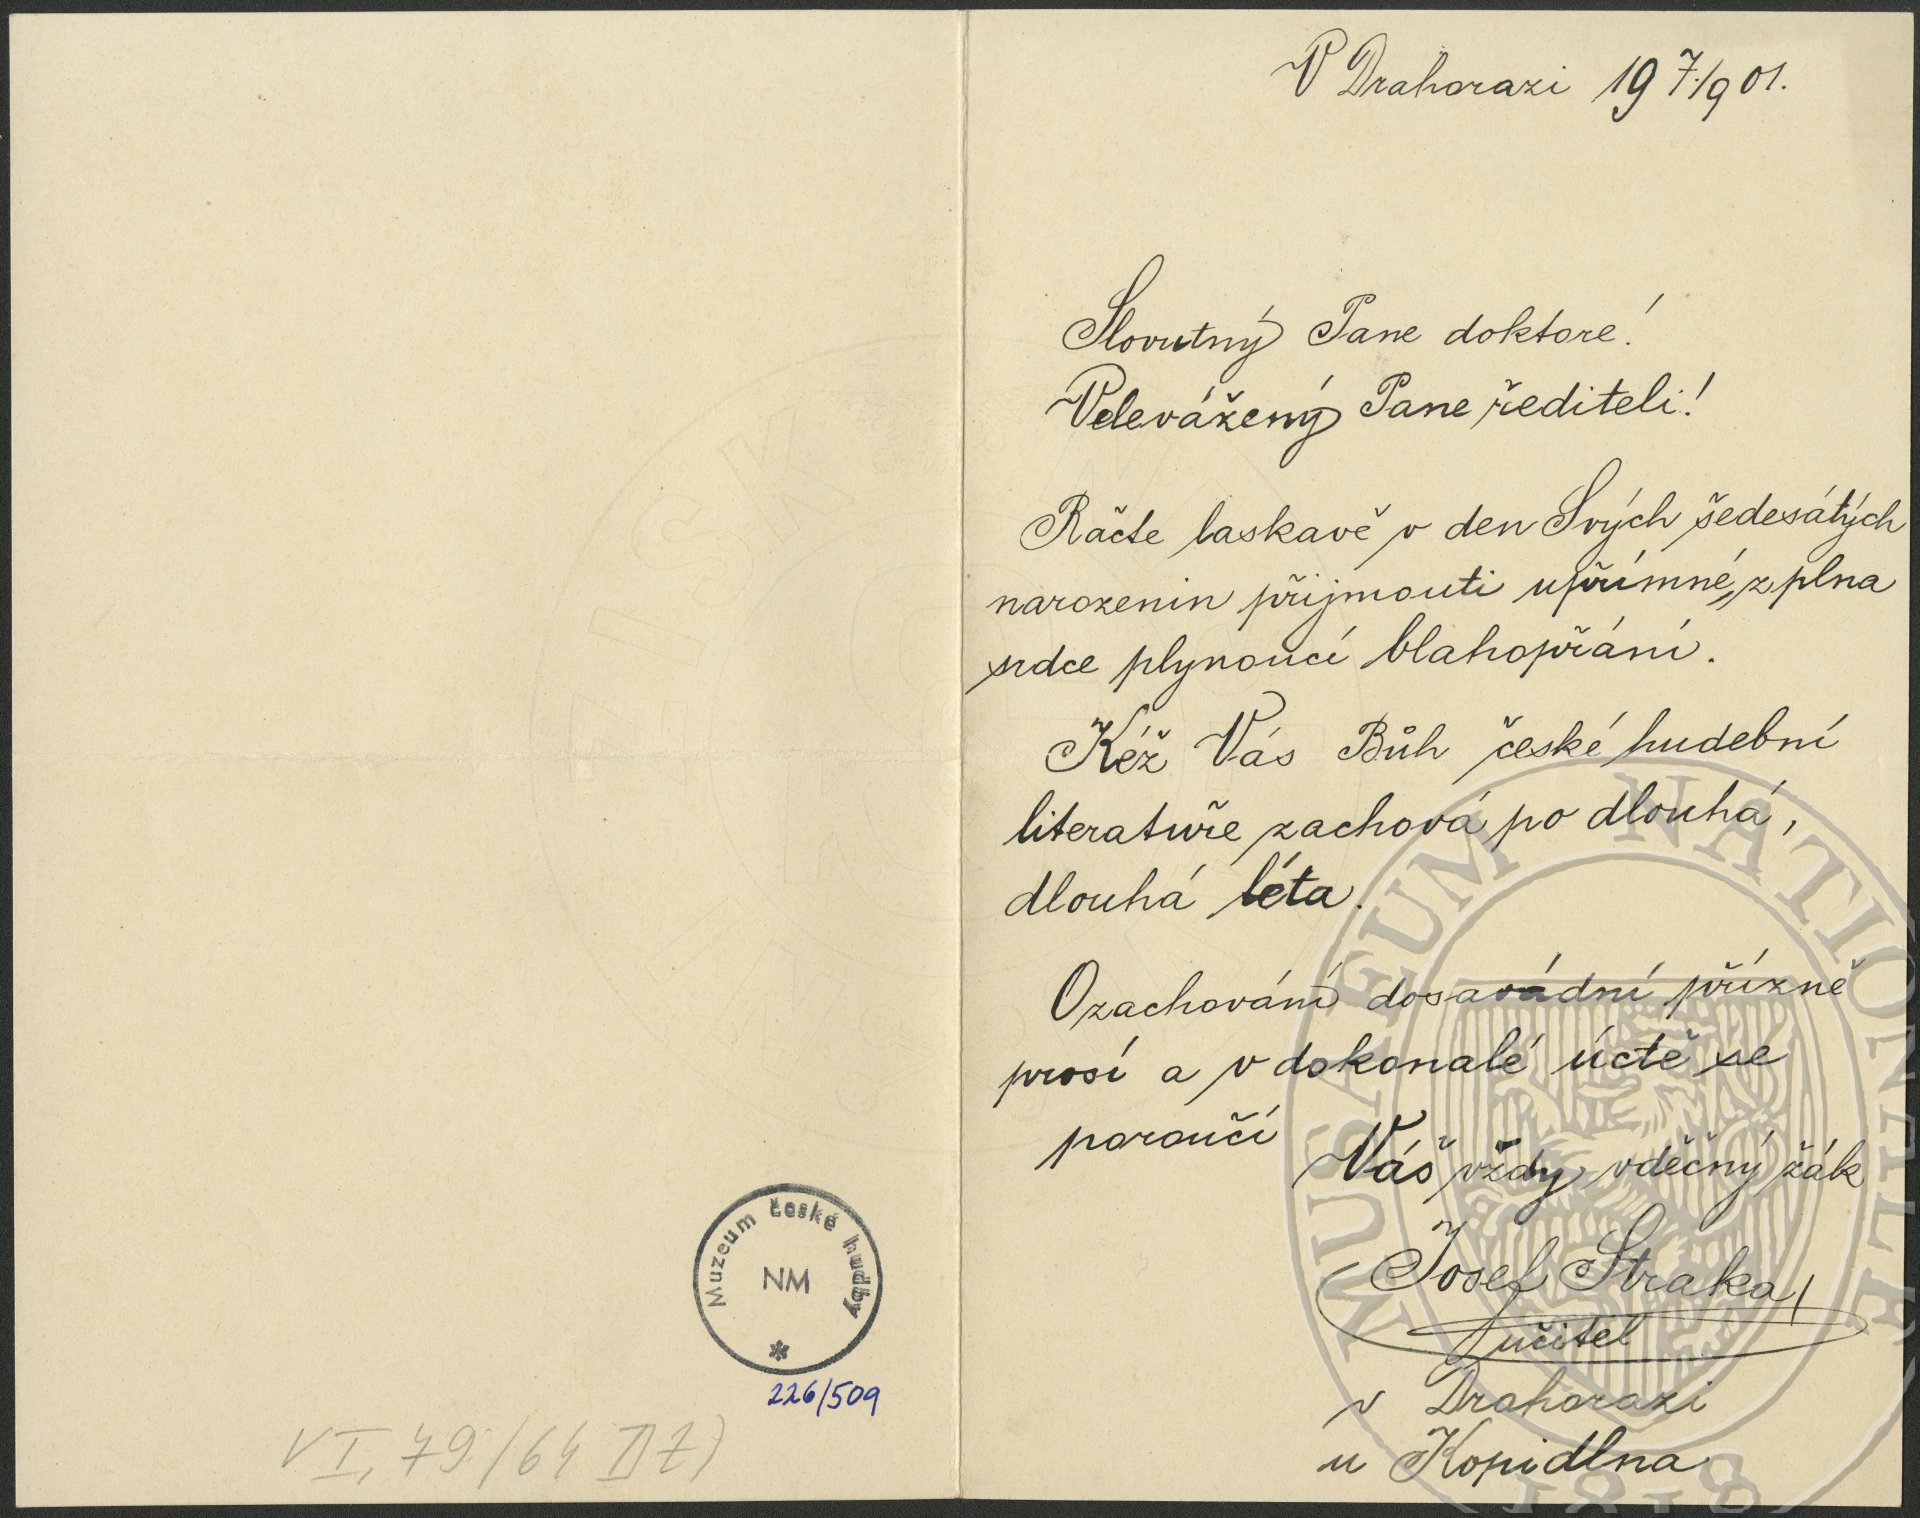 V Drahorazi 19 7./9 01.
Slovutný Pane doktore!
Velevážený Pane řediteli!
Račte laskavě v den Svých šedesátých
narozenin přijmouti upřímné, z plna
srdce plynoucí blahopřání.
Kéž Vás Bůh české hudební
literatuře zachová po dlouhá,
dlouhá léta.
O zachování dosavádní přízně
prosí a v dokonalé úctě se
poroučí
Váš vždy vděčný žák
Josef Straka,
učitel
v Drahorazi
u Kopidlna
Muzeum české hudby
NM
226/509
VI, 79/64
MUSAEUM NATIONALE
1818